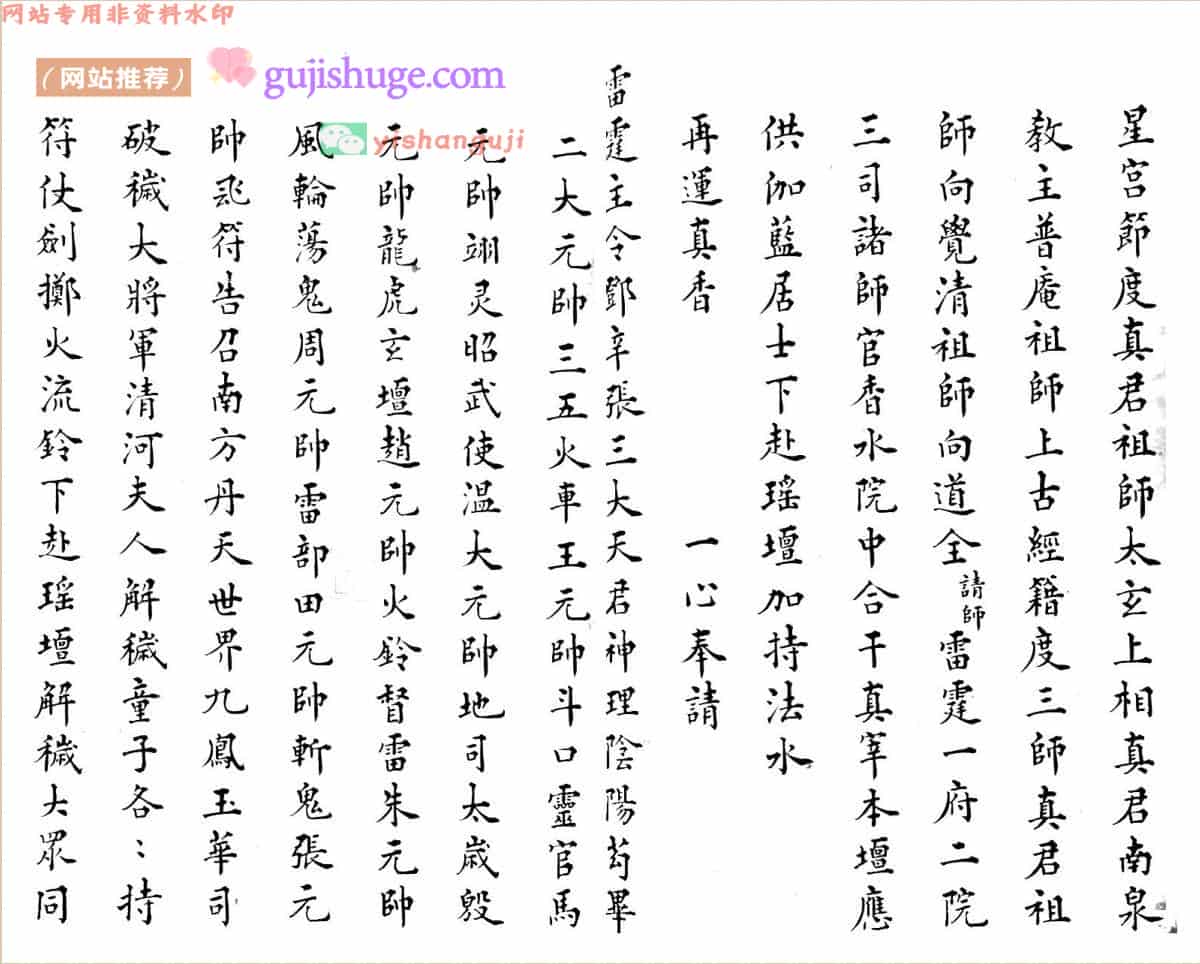 网站专用非资料水印
（网站推荐）
gujishuge.com
yishanguji
星宮節度真君祖師太玄上相真君南泉
教主普庵祖師上古經籍度三師真君祖
師向覺清祖師師向道全請師雷霆一府二院
三司諸師官香水院中合干真宰本壇應
供伽藍居士下赴瑶壇加持法水
再運真香 一心奉請
雷霆主令鄧辛張三大天君神理陰陽芶畢
二大元帥三五火車王元帥斗口靈官馬
元帥翊灵昭武使温大元帥地司太歲殷
元帥龍虎玄壇趙元帥火鈴督雷朱元帥
風輪蕩鬼周元帥雷部田元帥斬鬼張元
帥飛符告召南方丹天世界九鳳玉華司
破穢大將軍清河夫人解穢童子各〻持
符仗劍擲火流鈴下赴瑶壇解穢大眾同